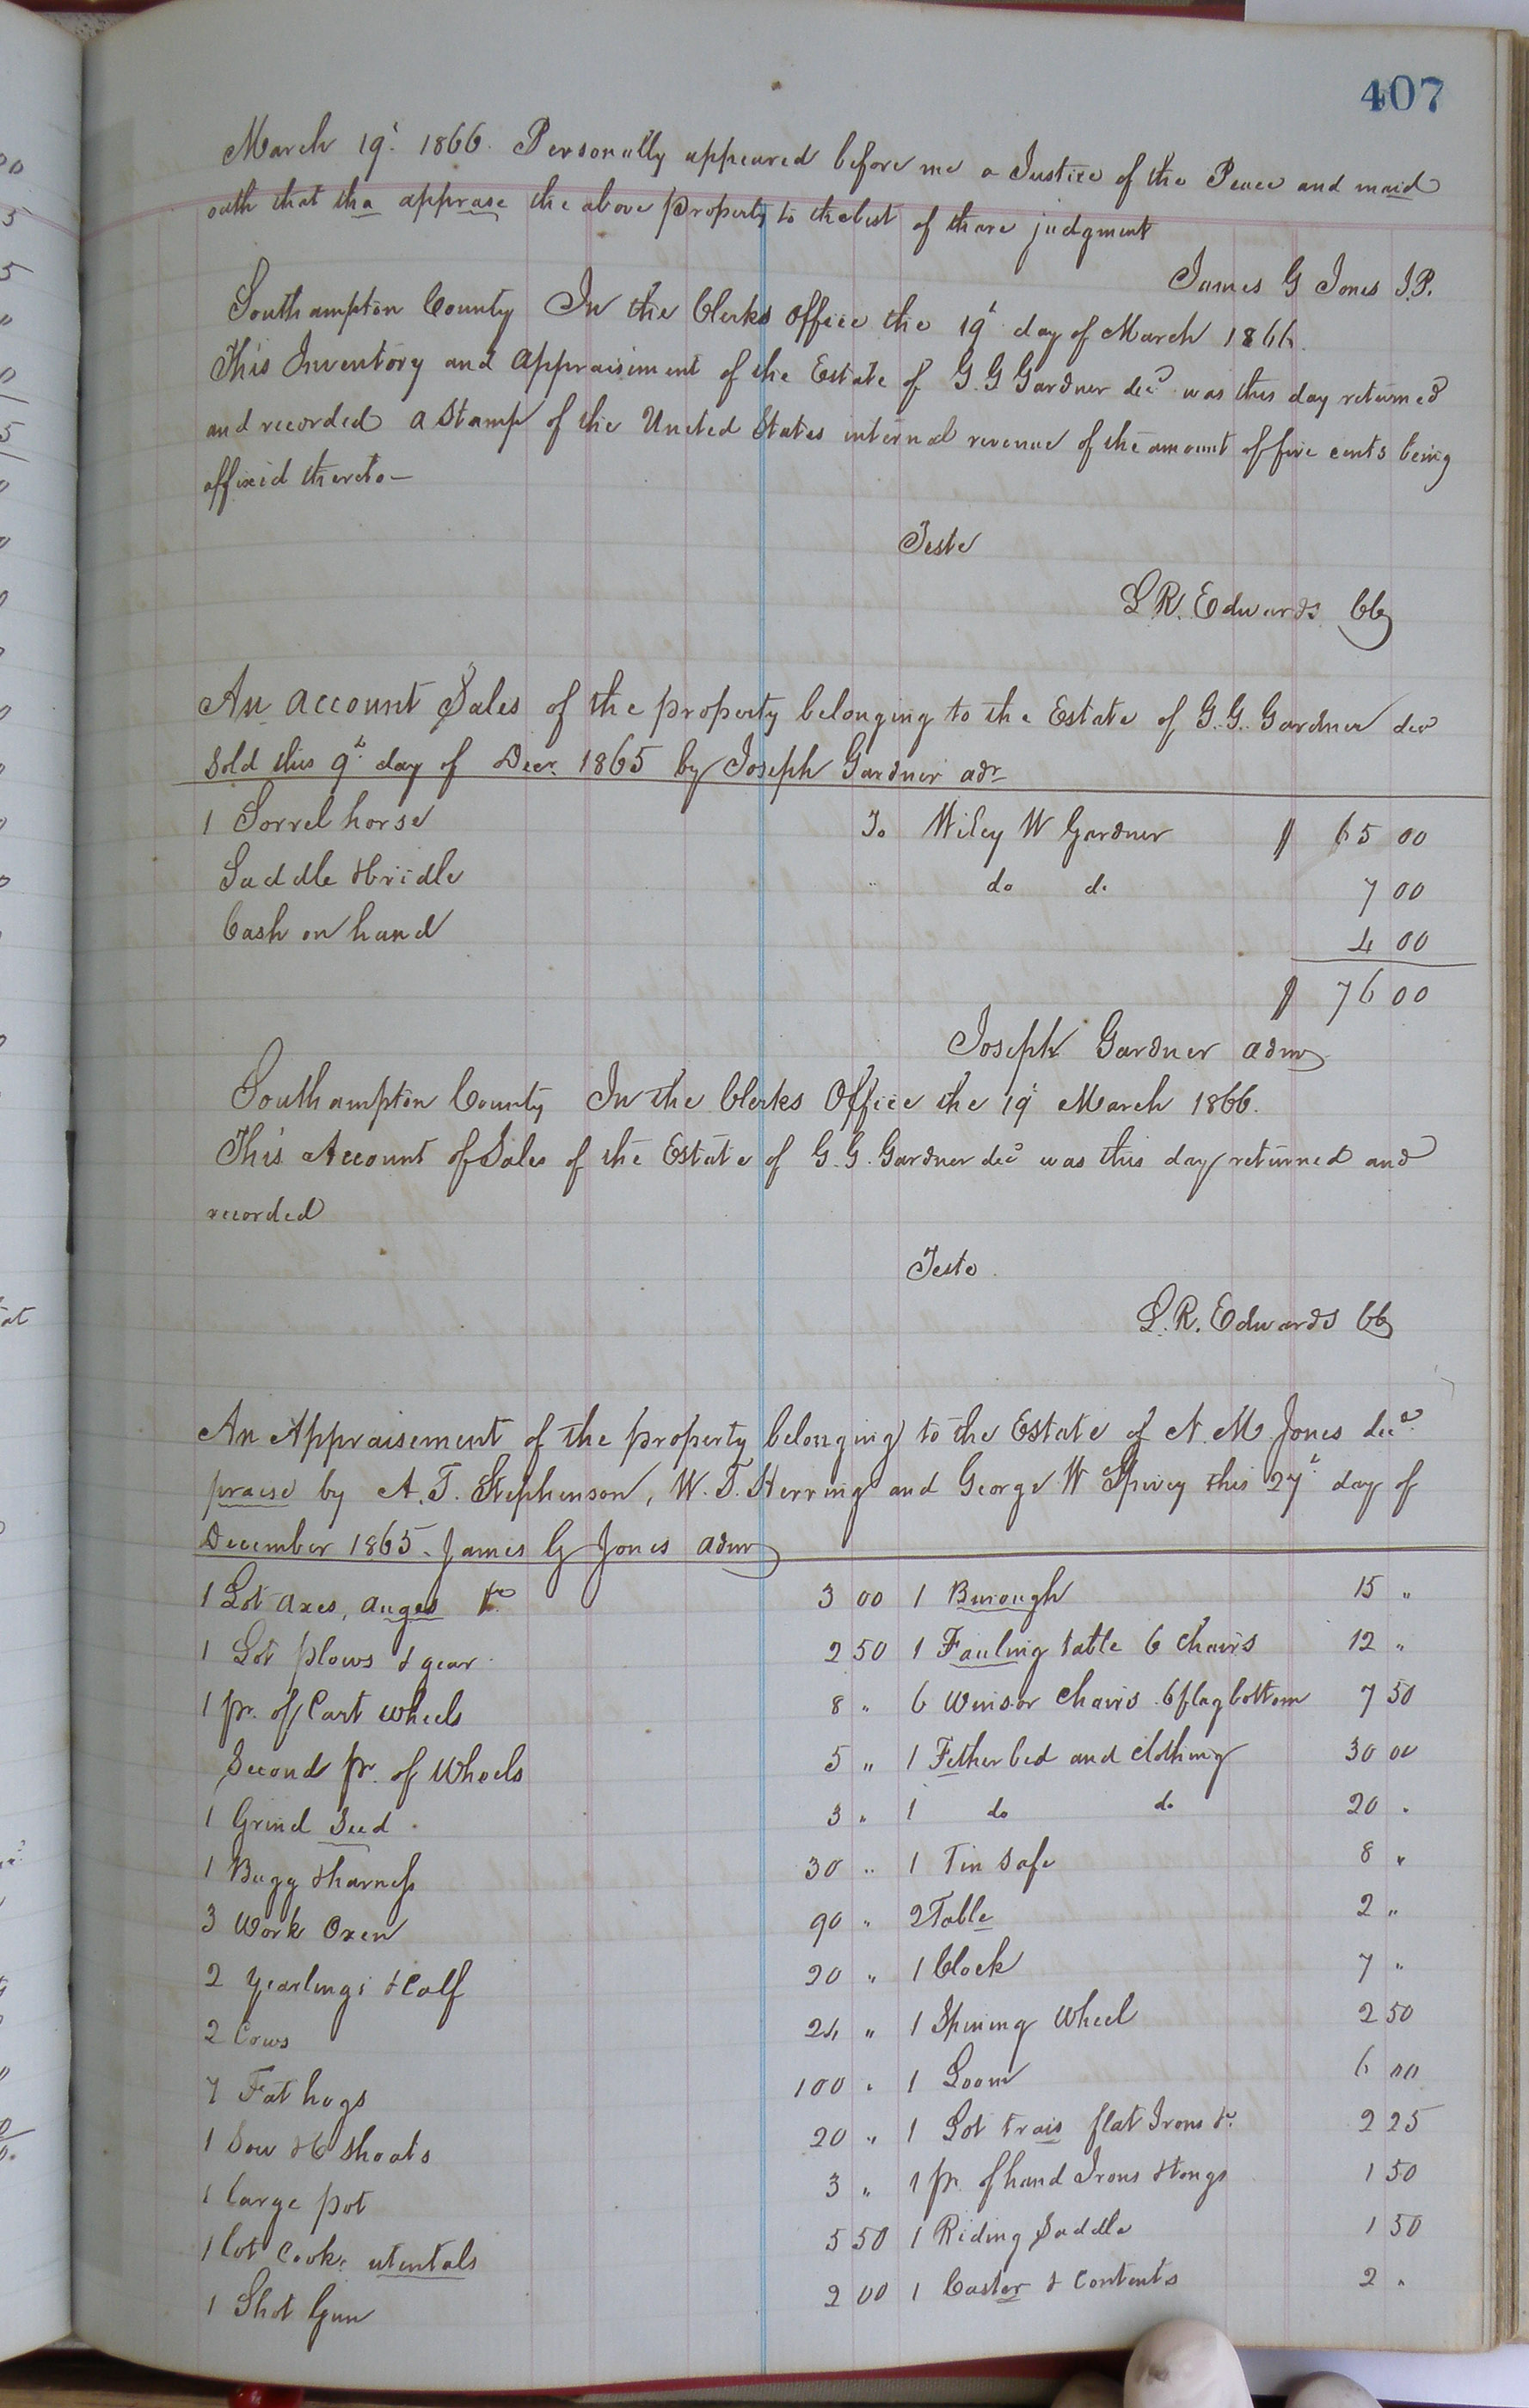 407
March 19th 1866. Personally appeared before me a Justice of the Peace and maid
oath that tha apprase the above property to the best of thare judgment
James G Jones J.P.
Southampton County In the Clerks Office the 19th day of March 1866.
This Inventory and appraisement of the Estate of G. G Gardner decd was this day returned
and recorded a Stamp of the United States internal revenue of the amount of five cents being
affixed thereto —
Teste
L R. Edwards CC
An account Sales of the property belonging to the Estate of G. G. Gardner decd
Sold this 9th day of Decr. 1865 by Joseph Gardner adr
1 Sorrel horse To Wiley W Gardner $ 65 00
Saddle & bridle " do do 7 00
Cash on hand 4 00
$ 76 00
Joseph Gardner admr
Southampton County In the Clerks Office the 19th March 1866.
This Account of Sales of the Estate of G. G. Gardner decd was this day returned and
recorded
Teste
L. R. Edwards CC
An Appraisement of the property belonging to the Estate of N. M. Jones decd
praise by A. T. Stephenson, W. T. Herring and George W Spivey this 27th day of
December 1865. James G Jones admr
1 Lot axes, auges &c. 3 00 1 Burough 15 "
1 Lot plows & gear 2 50 1 Fauling table 6 Chairs 12 "
1 pr. of Cart wheels 8 " 6 Winsor Chairs 6 flag bottom 7 50
Second pr. of Wheels 5 " 1 Fether bed and clothing 30 00
1 Grind Sted 3 " 1 do do 20 "
1 Bugg & harness 30 " 1 Tin Safe 8 "
3 Work Oxen 90 " 2 Table 2 "
2 Yearlings & Calf 20 " 1 Clock 7 "
2 Cows 24 " 1 Spining Wheel 2 50
7 Fat hogs 100 " 1 Loom 6 00
1 Sow & 6 Shoats 20 " 1 Lot trais flat Irons &c. 2 25
1 large pot 3 " 1 pr. of hand Irons & tongs 1 50
1 lot Cook: utentals 5 50 1 Riding Saddle 1 50
1 Shot Gun 2 00 1 Castor & Contents 2 "